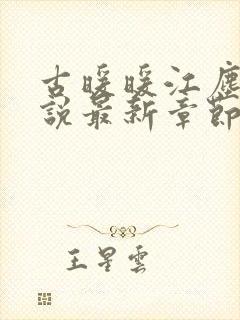 古暖暖江塵
說最新章節
王星雲